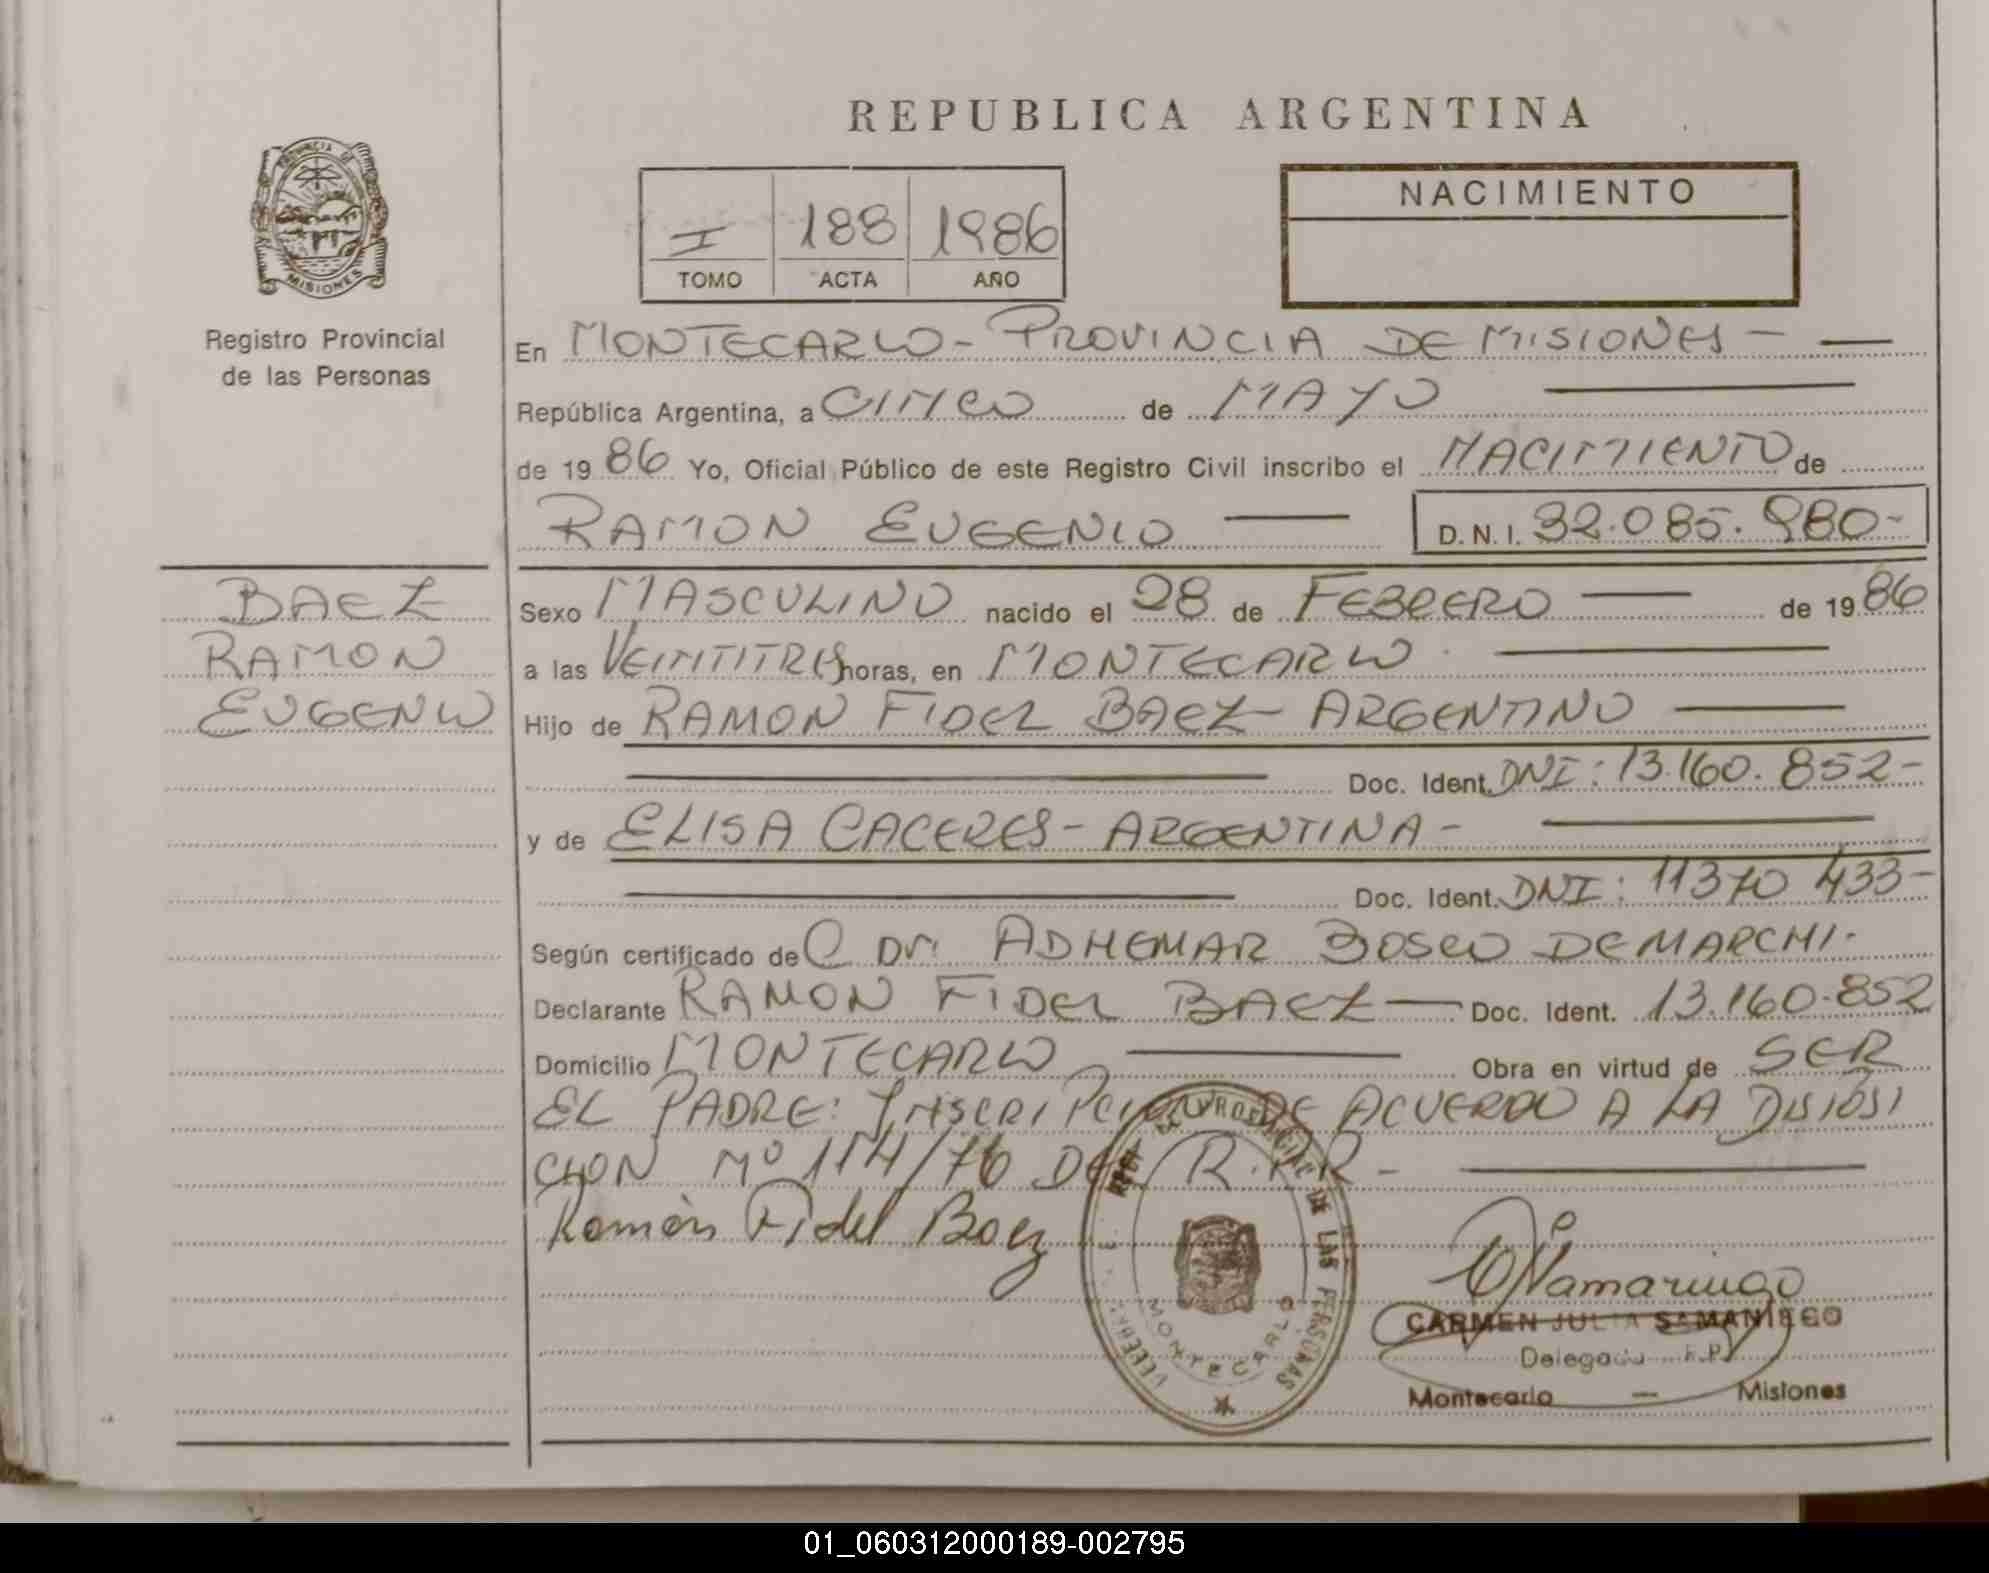 REPUBLICA ARGENTINA
PROVINCIA DE
MISIONES
Registro Provincial
de las Personas
I 188 1986
TOMO ACTA AÑO
NACIMIENTO
En MONTECARLO - PROVINCIA DE MISIONES -
República Argentina, a CINCO de MAYO
de 19 86 Yo, Oficial Público de este Registro Civil inscribo el NACIMIENTO de
RAMON EUGENIO D.N.I. 32.085.980-
BAEZ
RAMON
EUGENIO
Sexo MASCULINO nacido el 28 de FEBRERO de 19 86
a las VEINTITRES horas, en MONTECARLO
Hijo de RAMON FIDEL BAEZ - ARGENTINO
Doc. Ident. DNI: 13.160.852-
y de ELISA CACERES - ARGENTINA -
Doc. Ident. DNI: 11370 433-
Según certificado de Dr. ADHEMAR BOSCO DEMARCHI.
Declarante RAMON FIDEL BAEZ Doc. Ident. 13.160.852
Domicilio MONTECARLO Obra en virtud de SER
EL PADRE: INSCRIPCION DE ACUERDO A LA DISIOSI
CION Nº 114/76 DEL R.P.R-
Ramón Fidel Baez
DE LAS PERSONAS
MONTECARLO
CARMEN JULIA SAMANIEGO
Montecarlo — Misiones
01_060312000189-002795